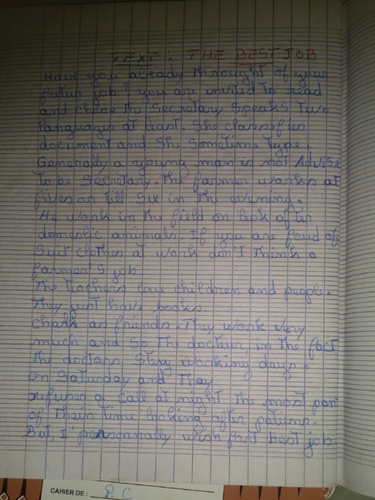 TEXT : THE BEST JOB
Have you already throught of your
futur job? you are invited to read
and chose the Secretary speaks two
languages at least. She classifies
document and she sometime type.
Generally a young man is not Advise
to be Secretary. The farmer works at
fives or till Six in the evening.
He work in the field on look after
domestic animals. If you are fond of
Suit clothes at work don't think a
farmer's job
The teachers law children and people.
They just have books.
chalk as friends. They work very
much and So the doctor, in the fact
the doctors Stay working days.
on Saturday and They
refused a call at night the most part
of their time looking after patiens.
But, I personally wish fast best job
CAHIER DE :